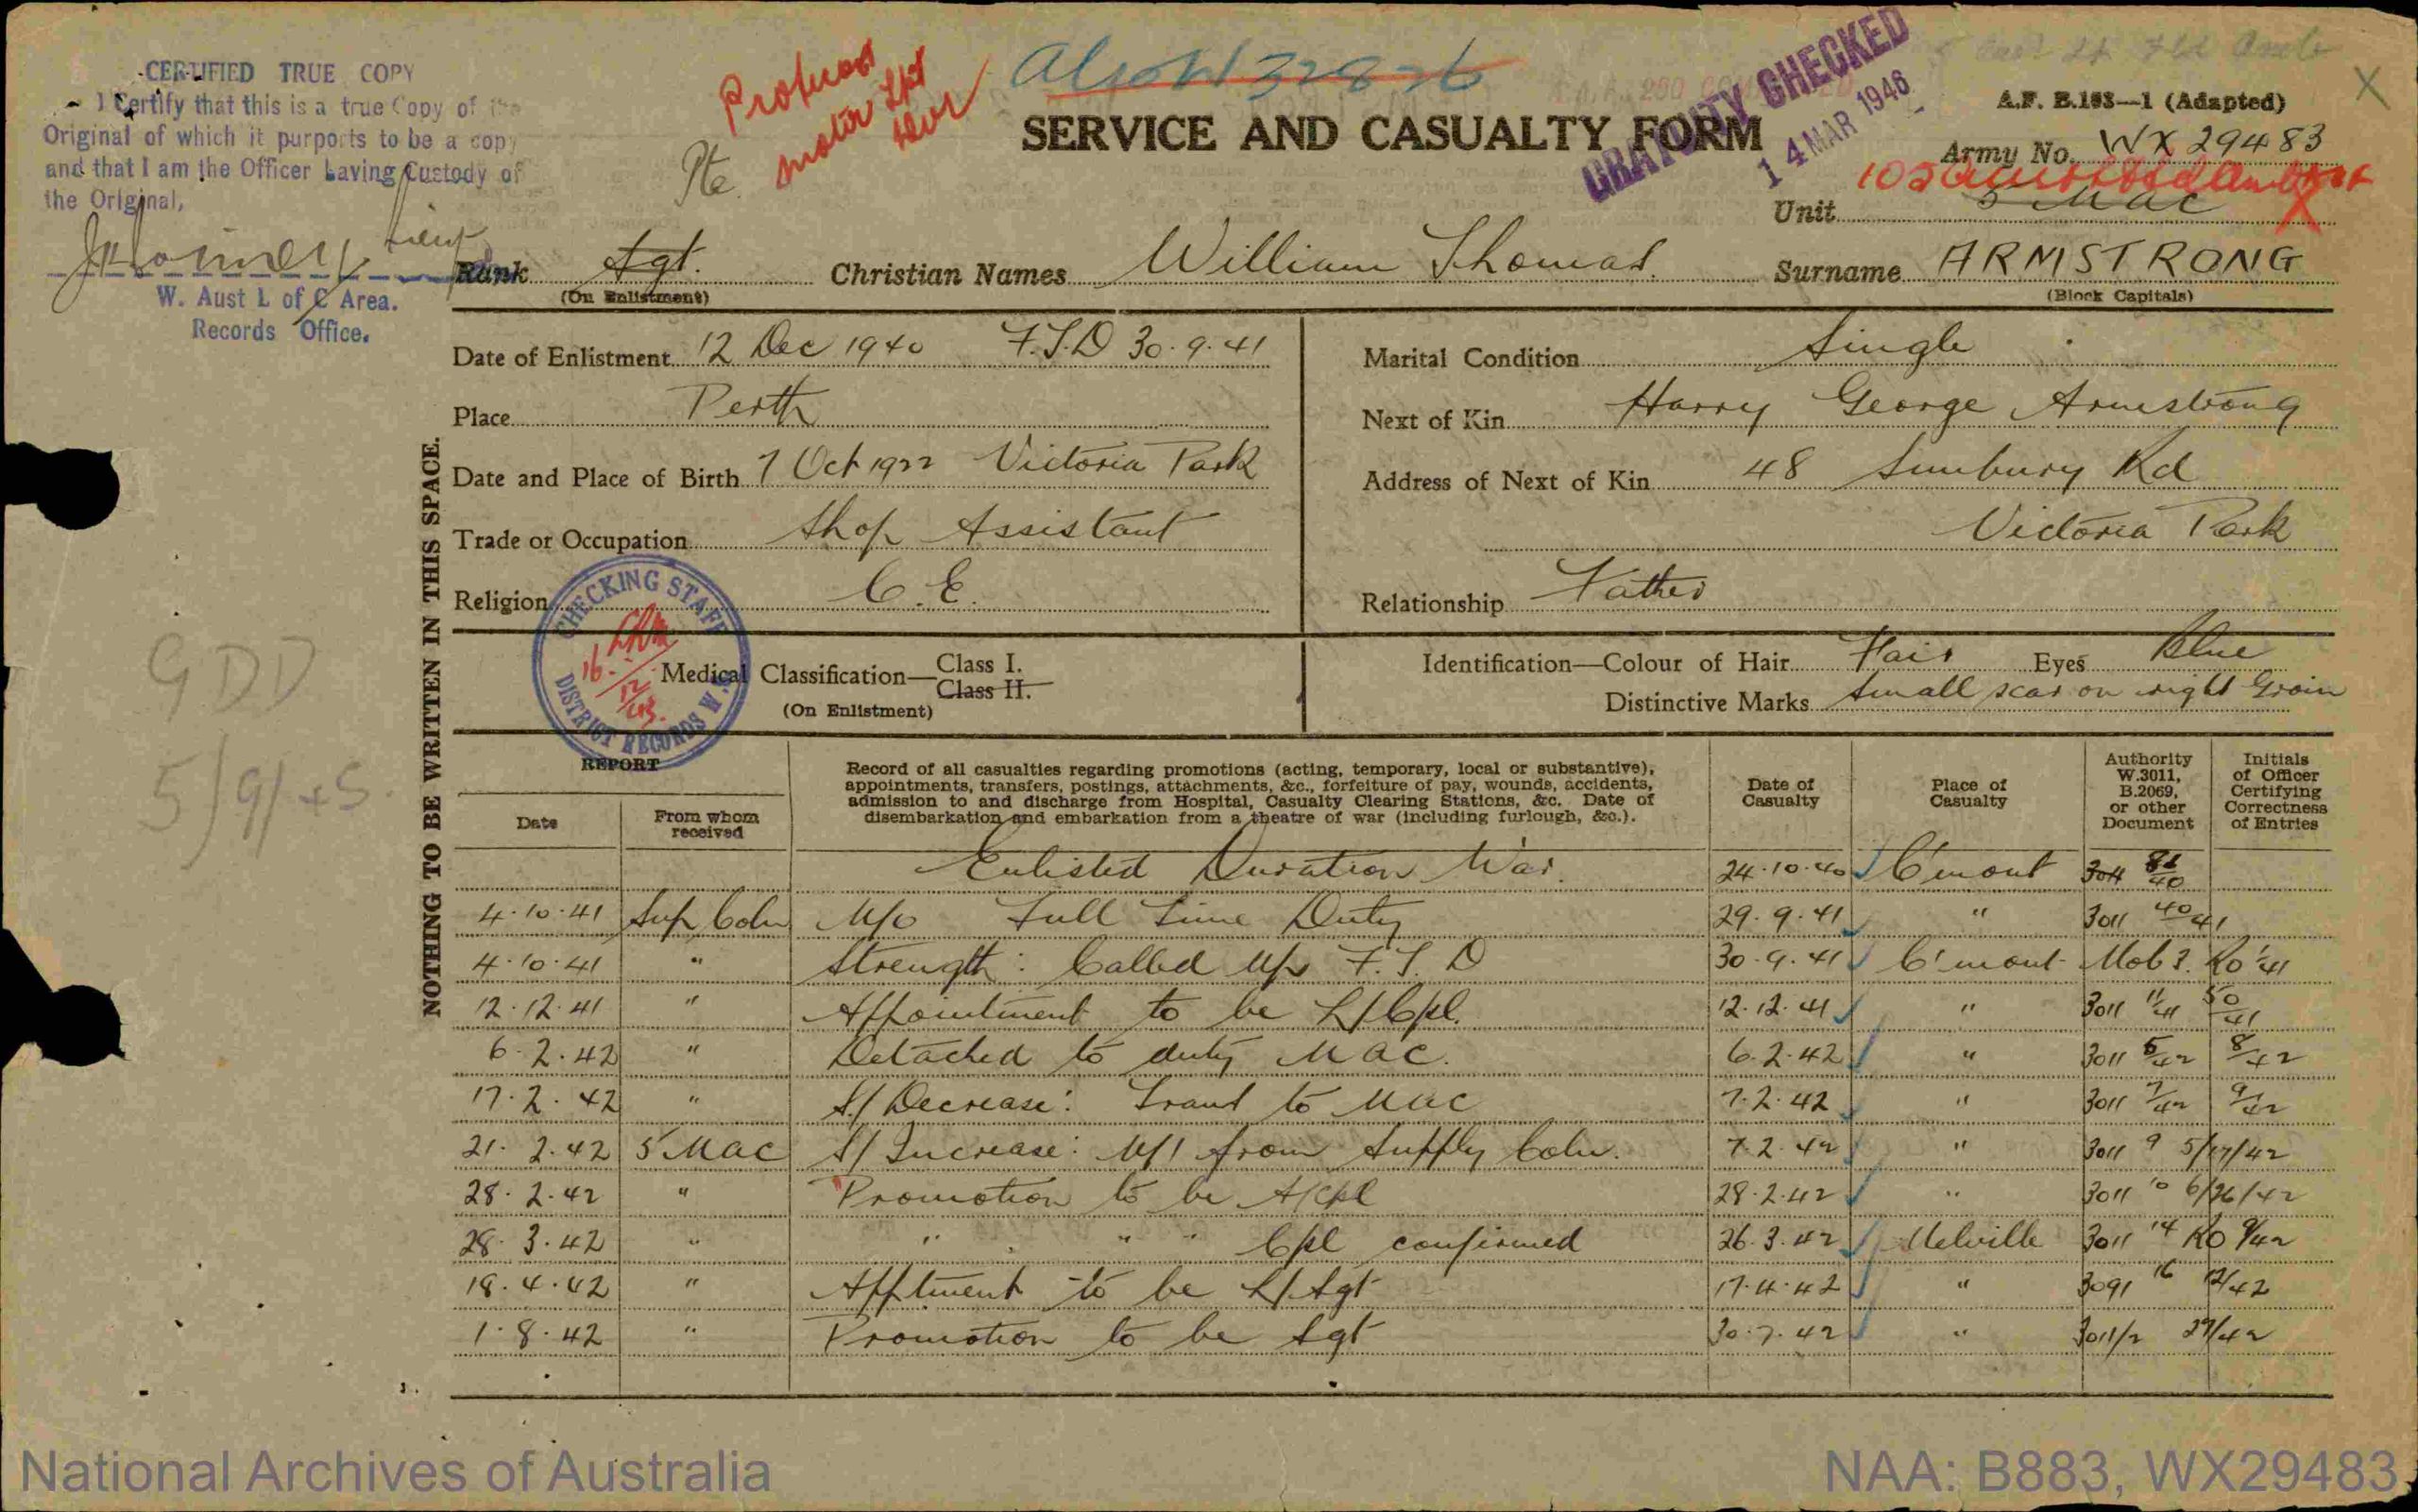 CERTIFIED TRUE COPY
I Certify that this is a true Copy of the
Original of which it purports to be a copy
and that I am the Officer having Custody of
the Original,
Lieut
W. Aust L of C Area.
Records Office.
Pte.
motor
Also W32826
GRATUITY CHECKED
14 MAR 1946
SERVICE AND CASUALTY FORM
A.F. B.103—1 (Adapted)
X
Army No. WX 29483
Unit 5 MAC
Rank Sgt. Christian Names William Thomas. Surname ARMSTRONG
(On Enlistment) (Block Capitals)
Date of Enlistment 12 Dec 1940 F.T.D 30.9.41
Place Perth
Date and Place of Birth 7 Oct 1922 Victoria Park
Trade or Occupation Shop Assistant
Religion C.E.
Marital Condition Single
Next of Kin Harry George Armstrong
Address of Next of Kin 48 Sunbury Rd
Victoria Park
Relationship Father
CHECKING STAFF
DISTRICT RECORDS W.A.
Medical Classification— Class I.
Class II.
(On Enlistment)
Identification—Colour of Hair Fair Eyes Blue
Distinctive Marks Small scar on right Groin
NOTHING TO BE WRITTEN IN THIS SPACE.
GDD
5/9/45.
REPORT
Date
From whom received
Record of all casualties regarding promotions (acting, temporary, local or substantive),
appointments, transfers, postings, attachments, &c., forfeiture of pay, wounds, accidents,
admission to and discharge from Hospital, Casualty Clearing Stations, &c. Date of
disembarkation and embarkation from a theatre of war (including furlough, &c.).
Date of Casualty
Place of Casualty
Authority W.3011, B.2069, or other Document
Initials of Officer Certifying Correctness of Entries
Enlisted Duration War. 24.10.40 C'mont
4.10.41 Sup Coln M/o Full Time Duty 29.9.41 " 3011 40/41
4.10.41 " Strength: Called Up F.T.D 30.9.41 C'mont Mob 3. RO 1/41
12.12.41 " Appointment to be L/Cpl. 12.12.41 " 3011 11/41 50/41
6.2.42 " Detached to duty MAC. 6.2.42 " 3011 5/42 8/42
17.2.42 " S/Decrease: Transf to MAC 7.2.42 " 3011 7/42 9/42
21.2.42 5 MAC S/Increase: M/I from Supply Coln. 7.2.42 " 3011 9 5/17/42
28.2.42 " Promotion to be A/Cpl 28.2.42 " 3011 10 6/26/42
28.3.42 " " " " Cpl confirmed 26.3.42 Melville 3011 14 RO 9/42
18.4.42 " Apptment to be L/Sgt 17.4.42 " 3091 16 12/42
1.8.42 " Promotion to be Sgt 30.7.42 " 3011/2 27/42
National Archives of Australia
NAA: B883, WX29483